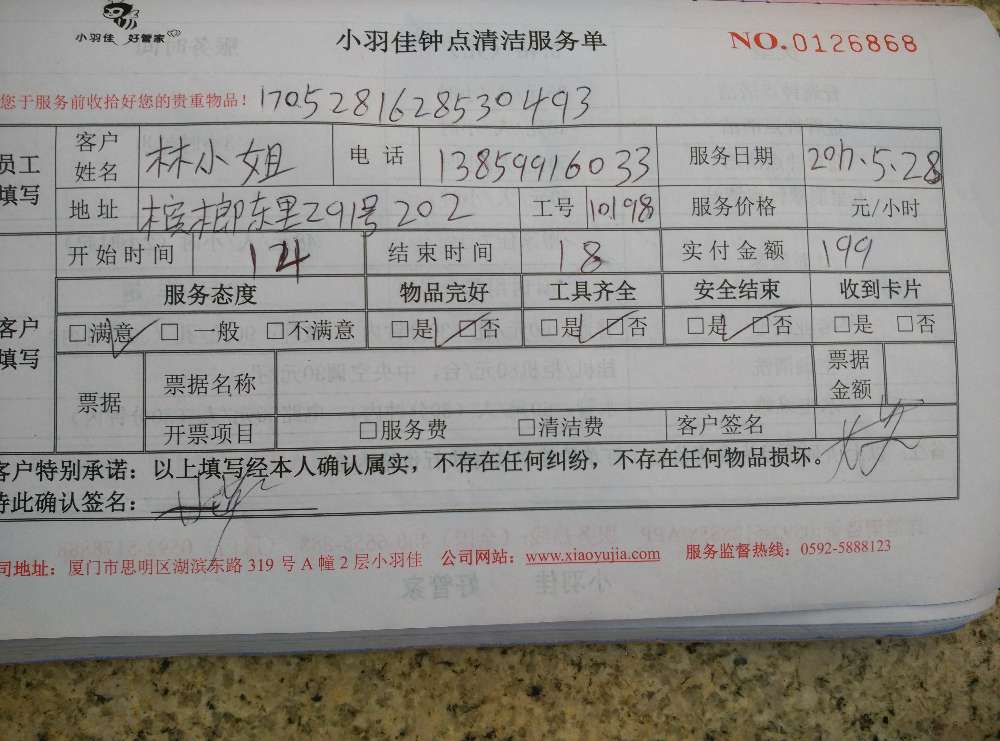 小羽佳 好管家
小羽佳钟点清洁服务单
NO.0126868
您于服务前收拾好您的贵重物品! 1705281628530493
员工填写 客户姓名 林小姐 电话 13859916033 服务日期 2017.5.28
地址 槟榔东里291号202 工号 10198 服务价格 元/小时
开始时间 14 结束时间 18 实付金额 199
客户填写 服务态度 物品完好 工具齐全 安全结束 收到卡片
□满意 □一般 □不满意 □是 □否 □是 □否 □是 □否 □是 □否
票据 票据名称 票据金额
开票项目 □服务费 □清洁费 客户签名
客户特别承诺:以上填写经本人确认属实,不存在任何纠纷,不存在任何物品损坏。
特此确认签名:
司地址:厦门市思明区湖滨东路 319 号 A 幢 2 层小羽佳 公司网站:www.xiaoyujia.com 服务监督热线:0592-5888123